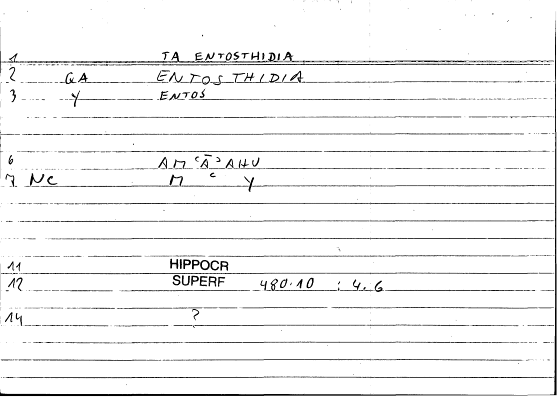 1 TA ENTOSTHIDIA
2 GA ENTOSTHIDIA
3 Y ENTOS
6 AM 'Ā' AHU
7 NC M ' Y
11 HIPPOCR
12 SUPERF 480.10 : 4.6
14 ?